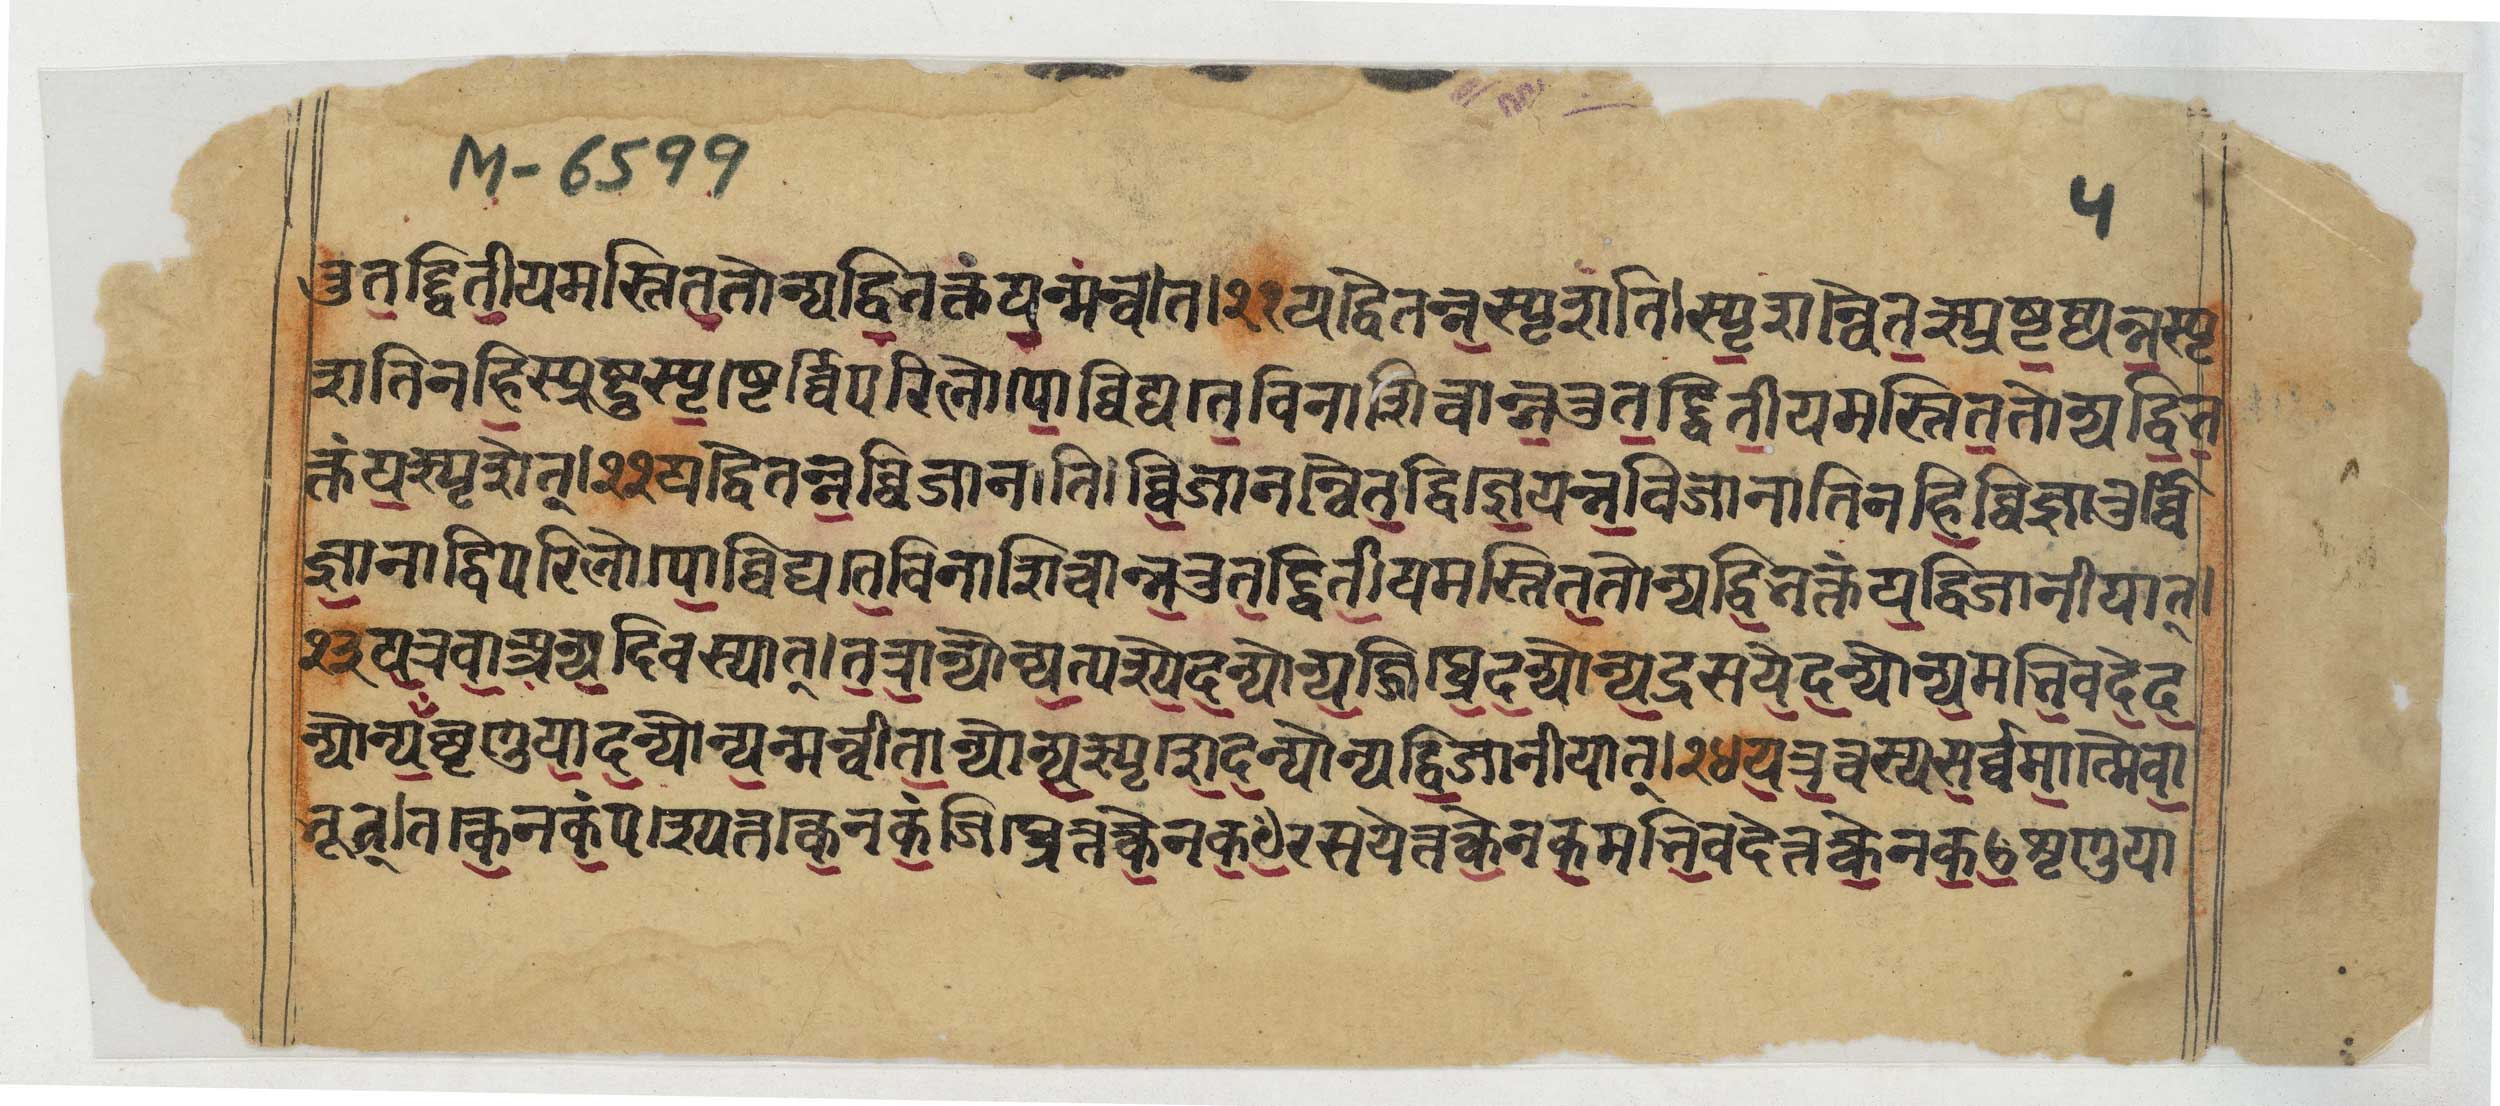 M-6599
५
तुतद्द्वितीयमस्तिततोन्यद्विभक्तंयन्मन्वीत।२१यद्वैतन्नस्पृशति।स्पृशन्वैतस्प्रष्टव्यन्नस्पृ
शतिनहिस्प्रष्टुस्पृष्टेर्व्विपरिलोपोव्विद्यतेविनाशित्वान्नतुतद्द्वितीयमस्तिततोन्यद्विभ
क्तंयत्स्पृशेत्।२२यद्वैतन्नव्विजानाति।व्विजानन्वैतद्विज्ञेयन्नविजानातिनहिव्विज्ञातुर्व्वि
ज्ञानाद्विपरिलोपोव्विद्यतेविनाशित्वान्नतुतद्द्वितीयमस्तिततोन्यद्विभक्तंयद्विजानीयात्।
२३यत्रवाअन्यदिवस्यात्।तत्रान्योन्यत्पश्येदन्योन्यज्जिघ्रेदन्योन्यद्रसयेदन्योन्यमभिवदेद
न्योन्यँशृणुयादन्योन्यन्मन्वीतान्योन्यत्स्पृशेदन्योन्यद्विजानीयात्।२४यत्रत्वस्यसर्व्वमात्मैवा
भूत्।तत्केनकंपश्येत्तत्केनकंजिघ्रेत्तत्केनकꣳरसयेत्तत्केनकमभिवदेत्तत्केनकꣳशृणुया